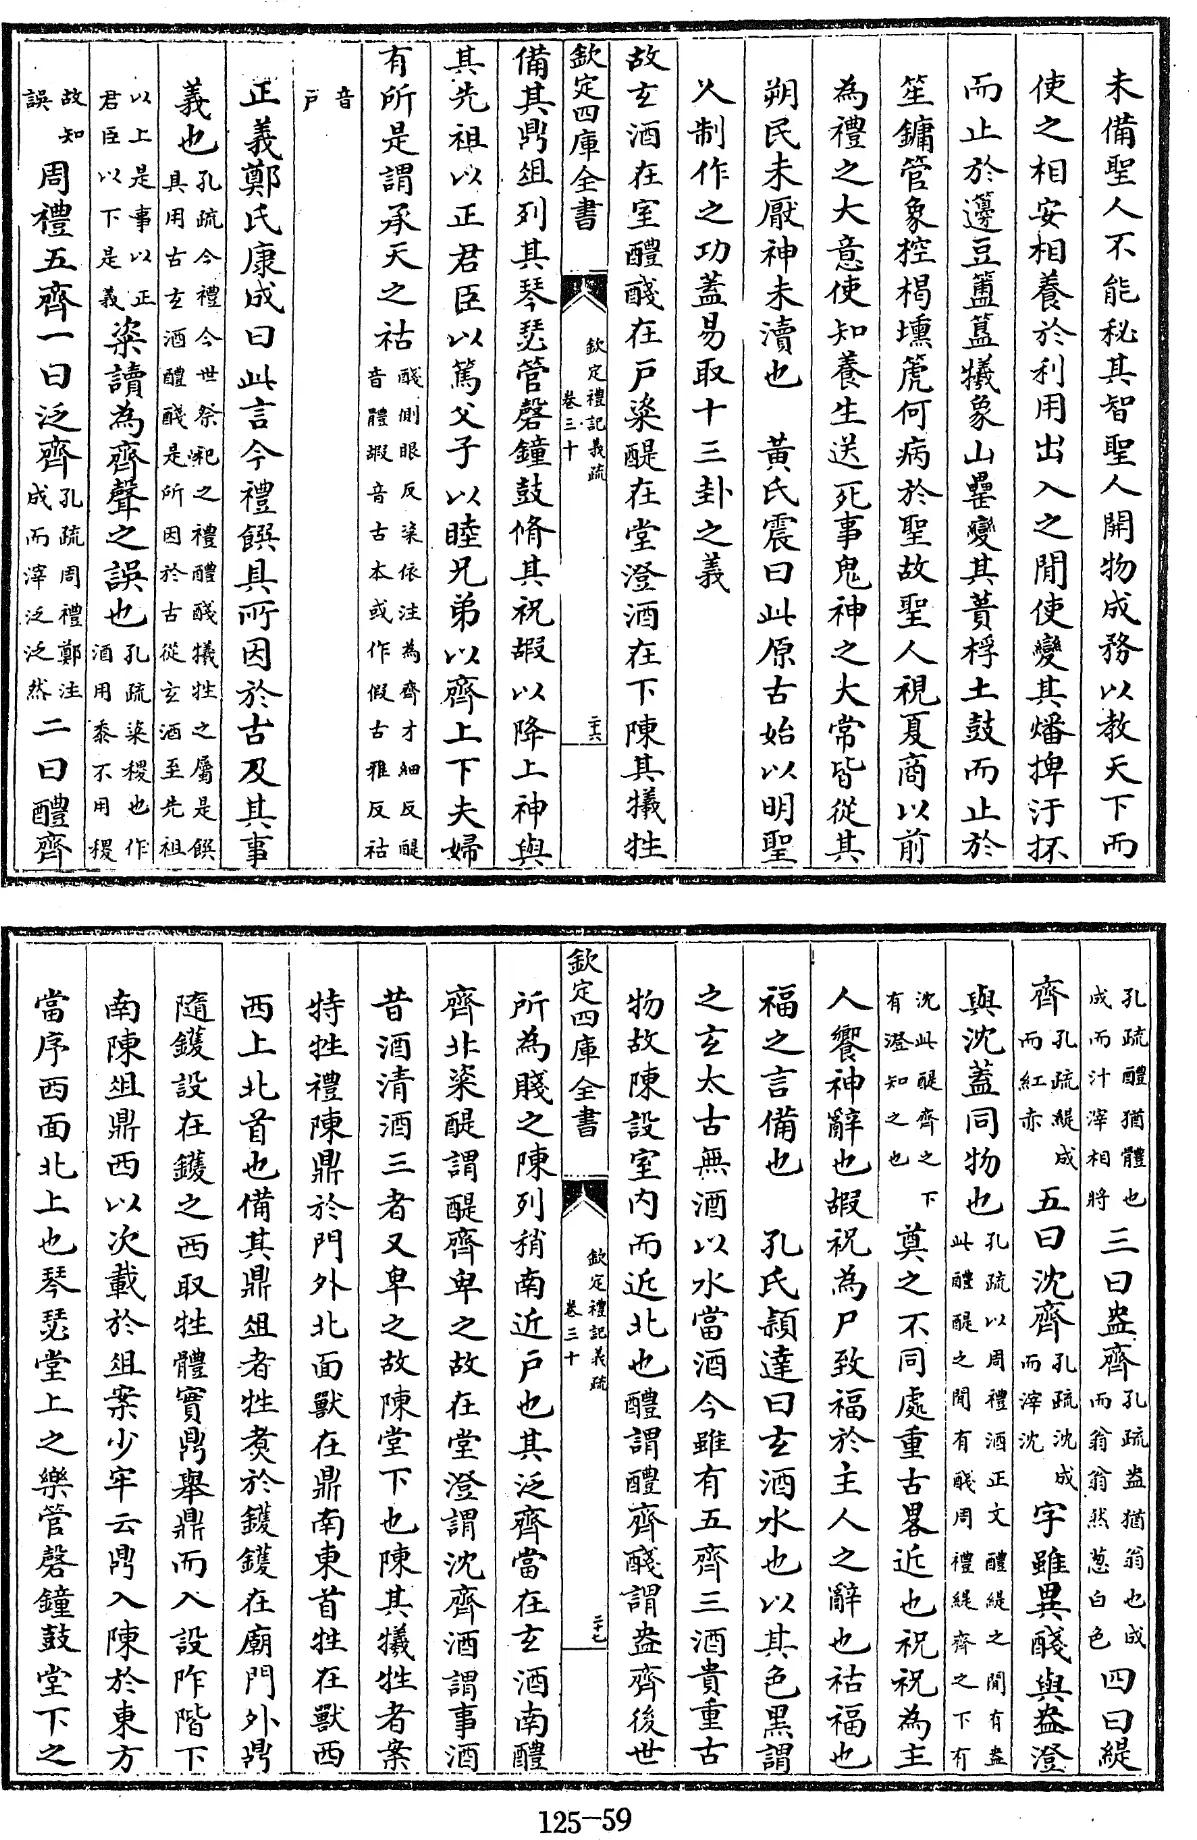 未備聖人不能秘其智聖人開物成務以教天下而
使之相安相養於利用出入之閒使變其燔捭汙抔
而止於籩豆簠簋犧象山罍變其蕢桴土鼓而止於
笙鏞管象椌楬壎箎何病於聖故聖人視夏商以前
為禮之大意使知養生送死事鬼神之大常皆從其
朔民未厭神未瀆也　黄氏震曰此原古始以明聖
人制作之功蓋易取十三卦之義
故玄酒在室醴醆在戸粢醍在堂澄酒在下陳其犧牲
欽定四庫全書
欽定禮記義疏
卷三十
二十六
備其鼎俎列其琴瑟管磬鐘鼓脩其祝嘏以降上神與
其先祖以正君臣以篤父子以睦兄弟以齊上下夫婦
有所是謂承天之祜醆側眼反粢依注為齊才細反醍
音體嘏音古本或作假古雅反祜
音
戸
正義鄭氏康成曰此言今禮饌具所因於古及其事
義也孔疏今禮今世祭祀之禮醴醆犧牲之屬是饌
具用古玄酒醴醆是所因於古從玄酒至先祖
以上是事以正
君臣以下是義粢讀為齊聲之誤也孔疏粢稷也作
酒用黍不用稷
故知
誤周禮五齊一曰泛齊孔疏周禮鄭注
成而滓泛泛然二曰醴齊
孔疏醴猶體也
成而汁滓相將三曰盎齊孔疏盎猶翁也成
而翁翁然葱白色四曰緹
齊孔疏緹成
而紅赤五曰沈齊孔疏沈成
而滓沈字雖異醆與盎澄
與沈蓋同物也孔疏以周禮酒正文醴緹之閒有盎
此醴醍之閒有醆周禮緹齊之下有
沈此醍齊之下
有澄知之也奠之不同處重古畧近也祝祝為主
人饗神辭也嘏祝為尸致福於主人之辭也祜福也
福之言備也　孔氏穎達曰玄酒水也以其色黑謂
之玄太古無酒以水當酒今雖有五齊三酒貴重古
物故陳設室内而近北也醴謂醴齊醆謂盎齊後世
欽定四庫全書
欽定禮記義疏
卷三十
二十七
所為賤之陳列稍南近戸也其泛齊當在玄酒南醴
齊北粢醍謂醍齊卑之故在堂澄謂沈齊酒謂事酒
昔酒清酒三者又卑之故陳堂下也陳其犧牲者案
特牲禮陳鼎於門外北面獸在鼎南東首牲在獸西
西上北首也備其鼎俎者牲煑於鑊鑊在廟門外鼎
隨鑊設在鑊之西取牲體實鼎舉鼎而入設阼階下
南陳俎鼎西以次載於俎案少牢云鼎入陳於東方
當序西面北上也琴瑟堂上之樂管磬鐘鼓堂下之
125-59